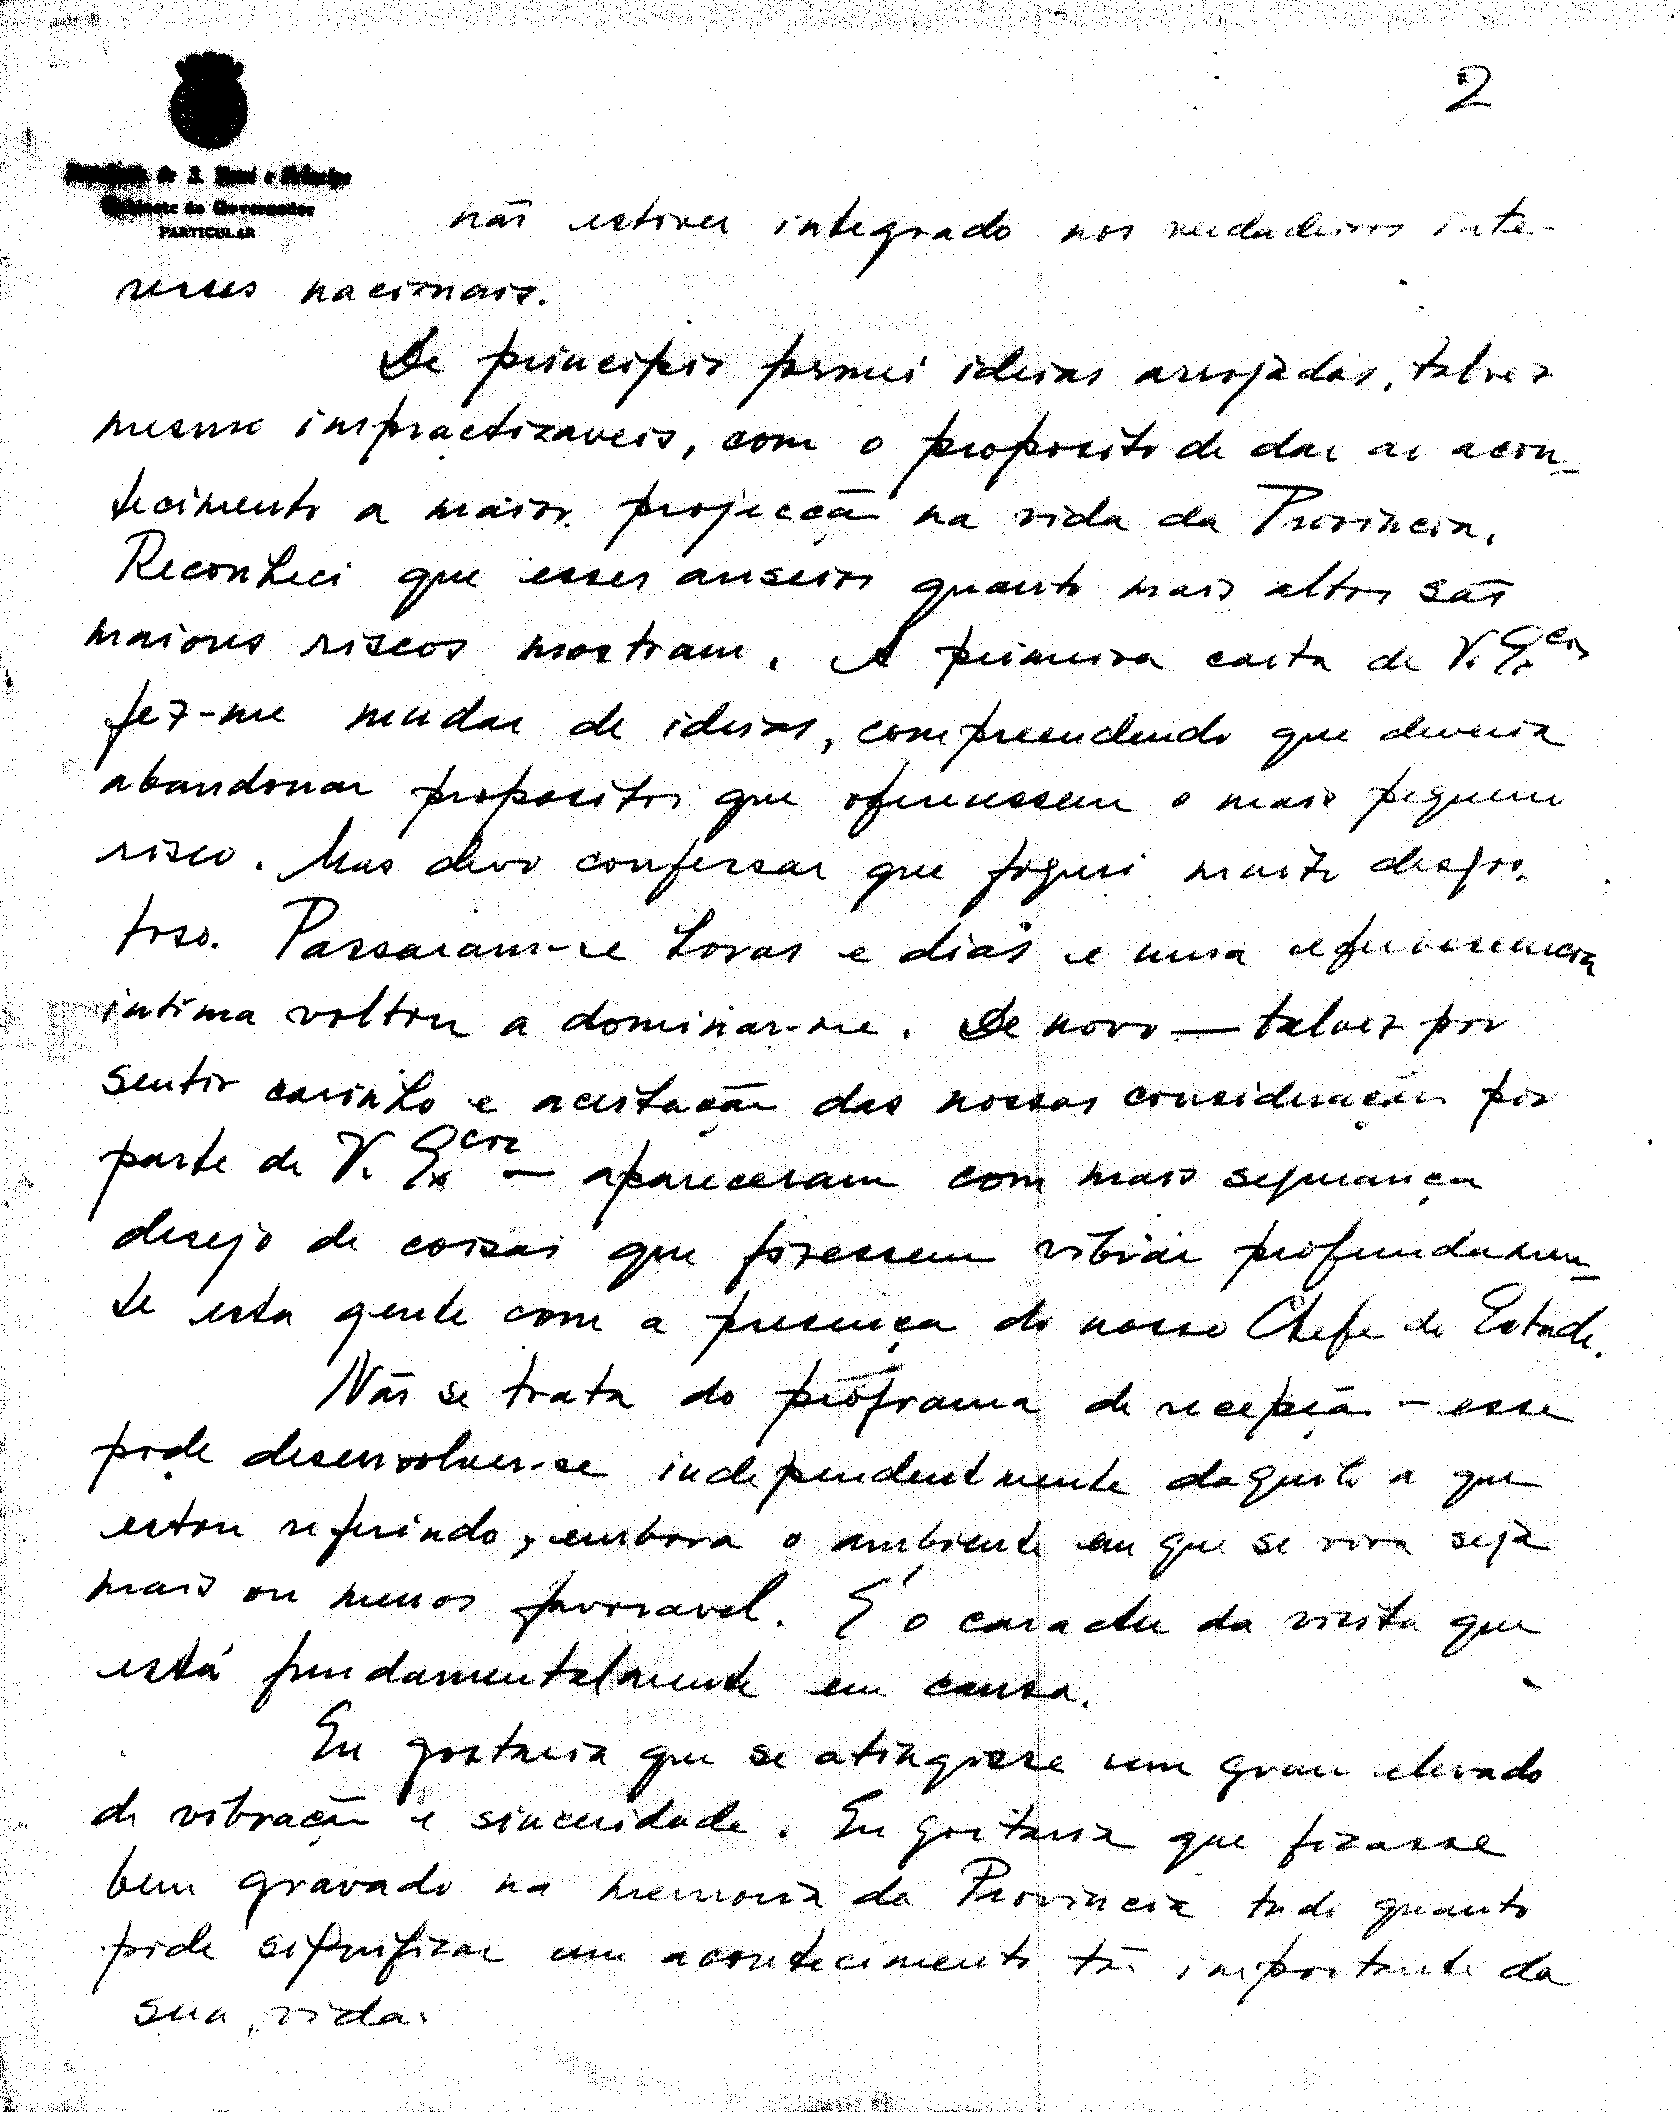 2
Província de S. Tomé e Príncipe
Gabinete do Governador
PARTICULAR
não estiver integrado nos verdadeiros inte-
resses nacionais.
De principio formei ideias arrojadas, talvez
mesmo impracticaveis, com o proposito de dar ao acon-
tecimento a maior projecção na vida da Provincia.
Reconheci que esses anseios quanto mais altos são
maiores riscos mostram. A primeira carta de V. Excia
fez-me mudar de ideias, compreendendo que deveria
abandonar propositos que oferecessem o mais pequeno
risco. Mas devo confessar que fiquei muito desgos-
toso. Passaram-se horas e dias e uma efervescencia
intima voltou a dominar-me. De novo — talvez por
sentir carinho e aceitação das nossas considerações por
parte de V. Excia — apareceram com mais segurança
desejo de coisas que fizessem vibrar profundamen-
te esta gente com a presença do nosso Chefe de Estado.
Não se trata do programa de recepção - esse
pode desenvolver-se independentmente daquilo a que
estou referindo, embora o ambiente em que se viva seja
mais ou menos favoravel. É o caracter da visita que
está fundamentalmente em causa.
Eu gostaria que se atingisse um grau elevado
de vibração e sinceridade. Eu gostaria que ficasse
bem gravado na memoria da Provincia tudo quanto
pode significar um acontecimento tão importante da
sua vida.